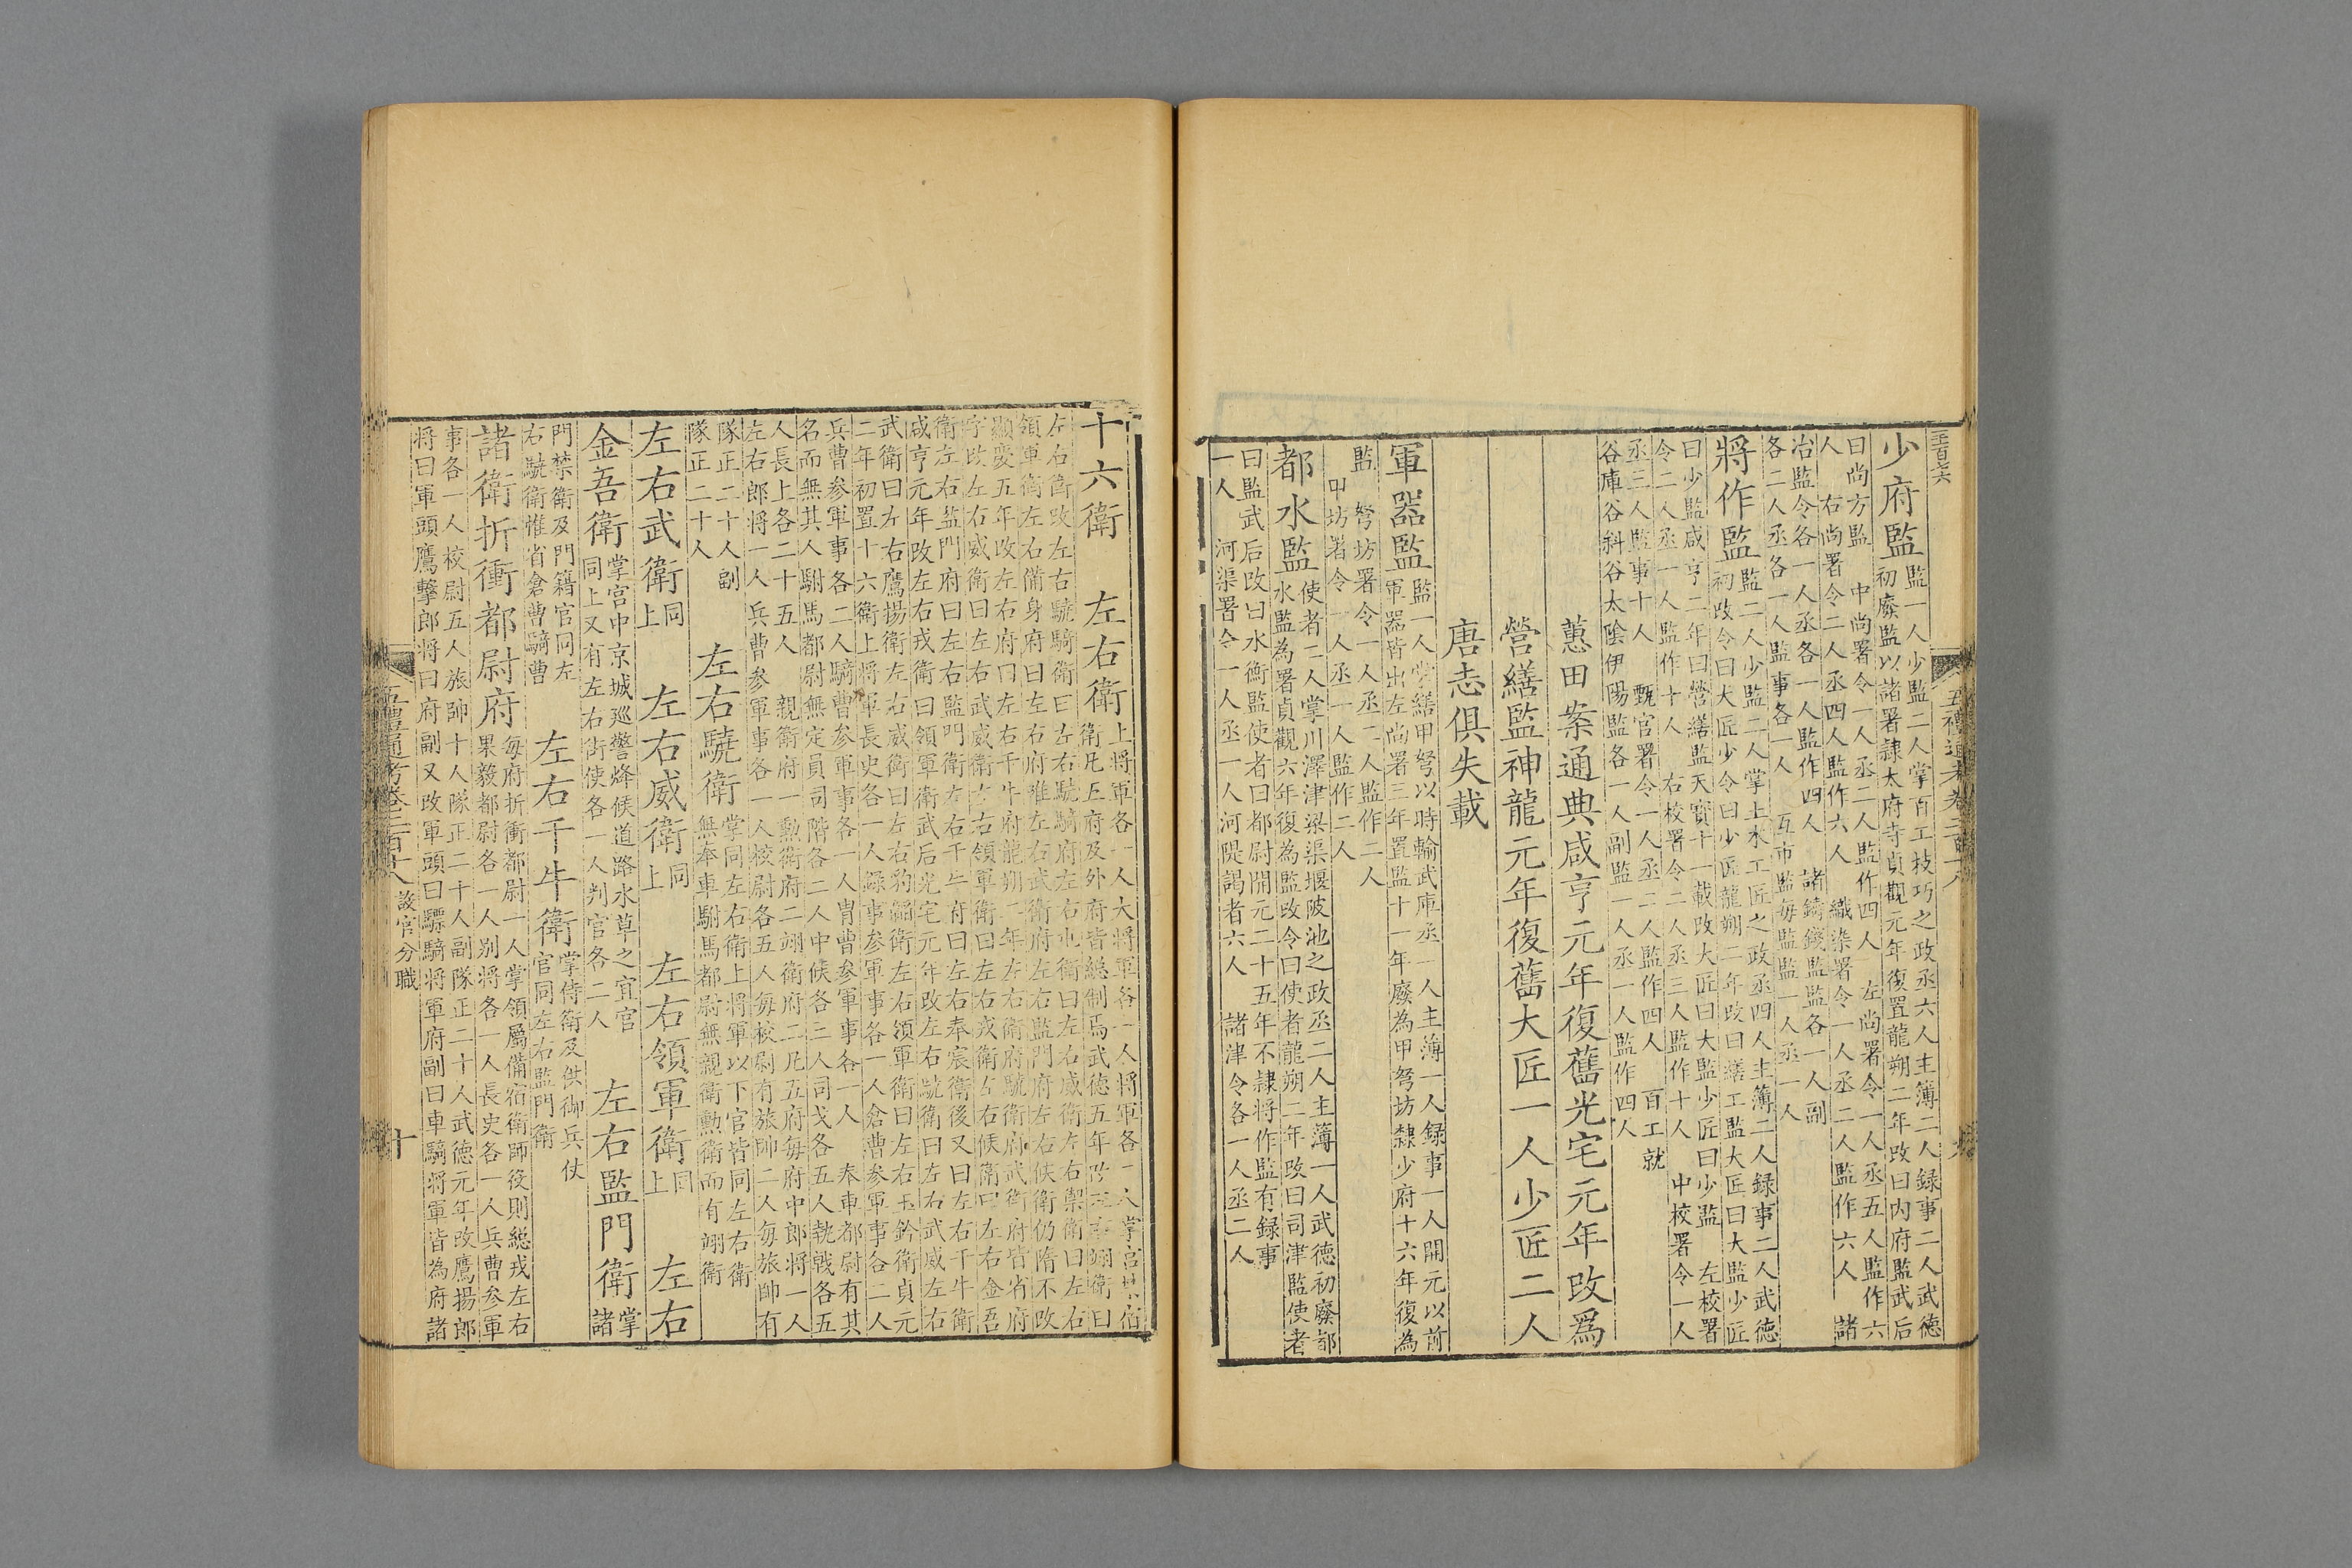 五百六
五禮通考卷二百十八
少府監
監一人少監二人掌百工技巧之政丞六人主簿二人録事二人武徳
初廢監以諸署隷太府寺貞觀元年復置龍朔二年改曰内府監武后
曰尚方監　中尚署令一人丞二人監作四人　左尚署令一人丞五人監作六
人　右尚署令二人丞四人監作六人　織染署令一人丞二人監作六人　諸
冶監令各一人丞各一人監作四人　諸鑄錢監監各一人副
各二人丞各一人監事各一人　互市監每監監一人丞一人
將作監
監二人少監二人掌土木工匠之政丞四人主簿二人録事二人武徳
初改令曰大匠少令曰少匠龍朔二年改曰繕工監大匠曰大監少匠
曰少監咸亨二年曰營繕監天寳十一載改大匠曰大監少匠曰少監　左校署
令二人丞一人監作十人　右校署令二人丞三人監作十人　中校署令一人
丞三人監事十人　甄官署令一人丞二人監作四人　百工就
谷庫谷斜谷太陰伊陽監各一人副監一人丞一人監作四人
蕙田案通典咸亨元年復舊光宅元年改爲
營繕監神龍元年復舊大匠一人少匠二人
唐志俱失載
軍器監
監一人掌繕甲弩以時輸武庫丞一人主簿一人録事一人開元以前
軍器皆出左尚署三年置監十一年廢為甲弩坊隸少府十六年復為
監　弩坊署令一人丞一人監作二人
甲坊署令一人丞一人監作二人
都水監
使者二人掌川澤津梁渠堰陂池之政丞二人主簿一人武徳初廢都
水監為署貞觀六年復為監改令曰使者龍朔二年改曰司津監使者
曰監武后改曰水衡監使者曰都尉開元二十五年不隷將作監有録事
一人　河渠署令一人丞一人河隄謁者六人　諸津令各一人丞二人
十六衛　左右衛
上將軍各一人大將軍各一人將軍各二人掌宮禁宿
衛凡五府及外府皆總制焉武徳五年改左右翊衛曰
左右衛改左右驍騎衛曰左右驍騎府左右屯衛曰左右威衛左右禦衛曰左右
領軍衛左右備身府曰左右府唯左右武衛府左右監門府左右候衛仍隋不改
顯慶五年改左右府曰左右千牛府龍朔二年左右衛府驍衛府武衛府皆省府
字改左右威衛曰左右武威衛左右領軍衛曰左右戎衛左右候衛曰左右金吾
衛左右監門府曰左右監門衛左右千牛府曰左右奉宸衛後又曰左右千牛衛
咸亨元年改左右戎衛曰領軍衛武后光宅元年改左右驍衛曰左右武威左右
武衛曰左右鷹揚衛左右威衛曰左右豹韜衛左右領軍衛曰左右玉鈐衛貞元
二年初置十六衛上將軍長史各一人録事參軍事各一人倉曹參軍事各二人
兵曹參軍事各二人騎曹參軍事各一人胄曹參軍事各一人　奉車都尉有其
名而無其人駙馬都尉無定員司階各二人中候各三人司戈各五人執戟各五
人長上各二十五人　親衛府一勲衛府二翊衛府二凡五府每府中郎將一人
左右郎將一人兵曹參軍事各一人校尉各五人每校尉有旅帥二人每旅帥有
隊正二十人副
隊正二十人
左右驍衛
掌同左右衛上將軍以下官皆同左右衛
無奉車駙馬都尉無親衛勲衛而有翊衛
左右武衛
同
上
左右威衛
同
上
左右領軍衛
同
上
左右
金吾衛
掌宮中京城巡警烽候道路水草之宜官
同上又有左右街使各一人判官各二人
左右監門衛
掌
諸
門禁衛及門籍官同左
右驍衛惟省倉曹騎曹
左右千牛衛
掌侍衛及供御兵仗
官同左右監門衛
諸衛折衝都尉府
每府折衝都尉一人掌領屬備宿衛師役則總戎左右
果毅都尉各一人别將各一人長史各一人兵曹參軍
事各一人校尉五人旅帥十人隊正二十人副隊正二十人武徳元年改鷹揚郎
將曰軍頭鷹擊郎將曰府副又改軍頭曰驃騎將軍府副曰車騎將軍皆為府諸
五禮通考卷二百十八　設官分職　十